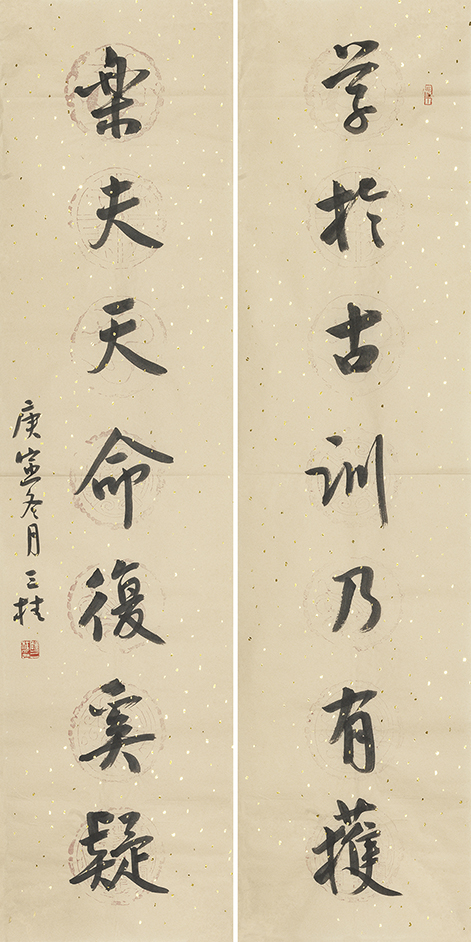 学于古训乃有擭
乐夫天命復奚疑
庚寅冬月 三柱